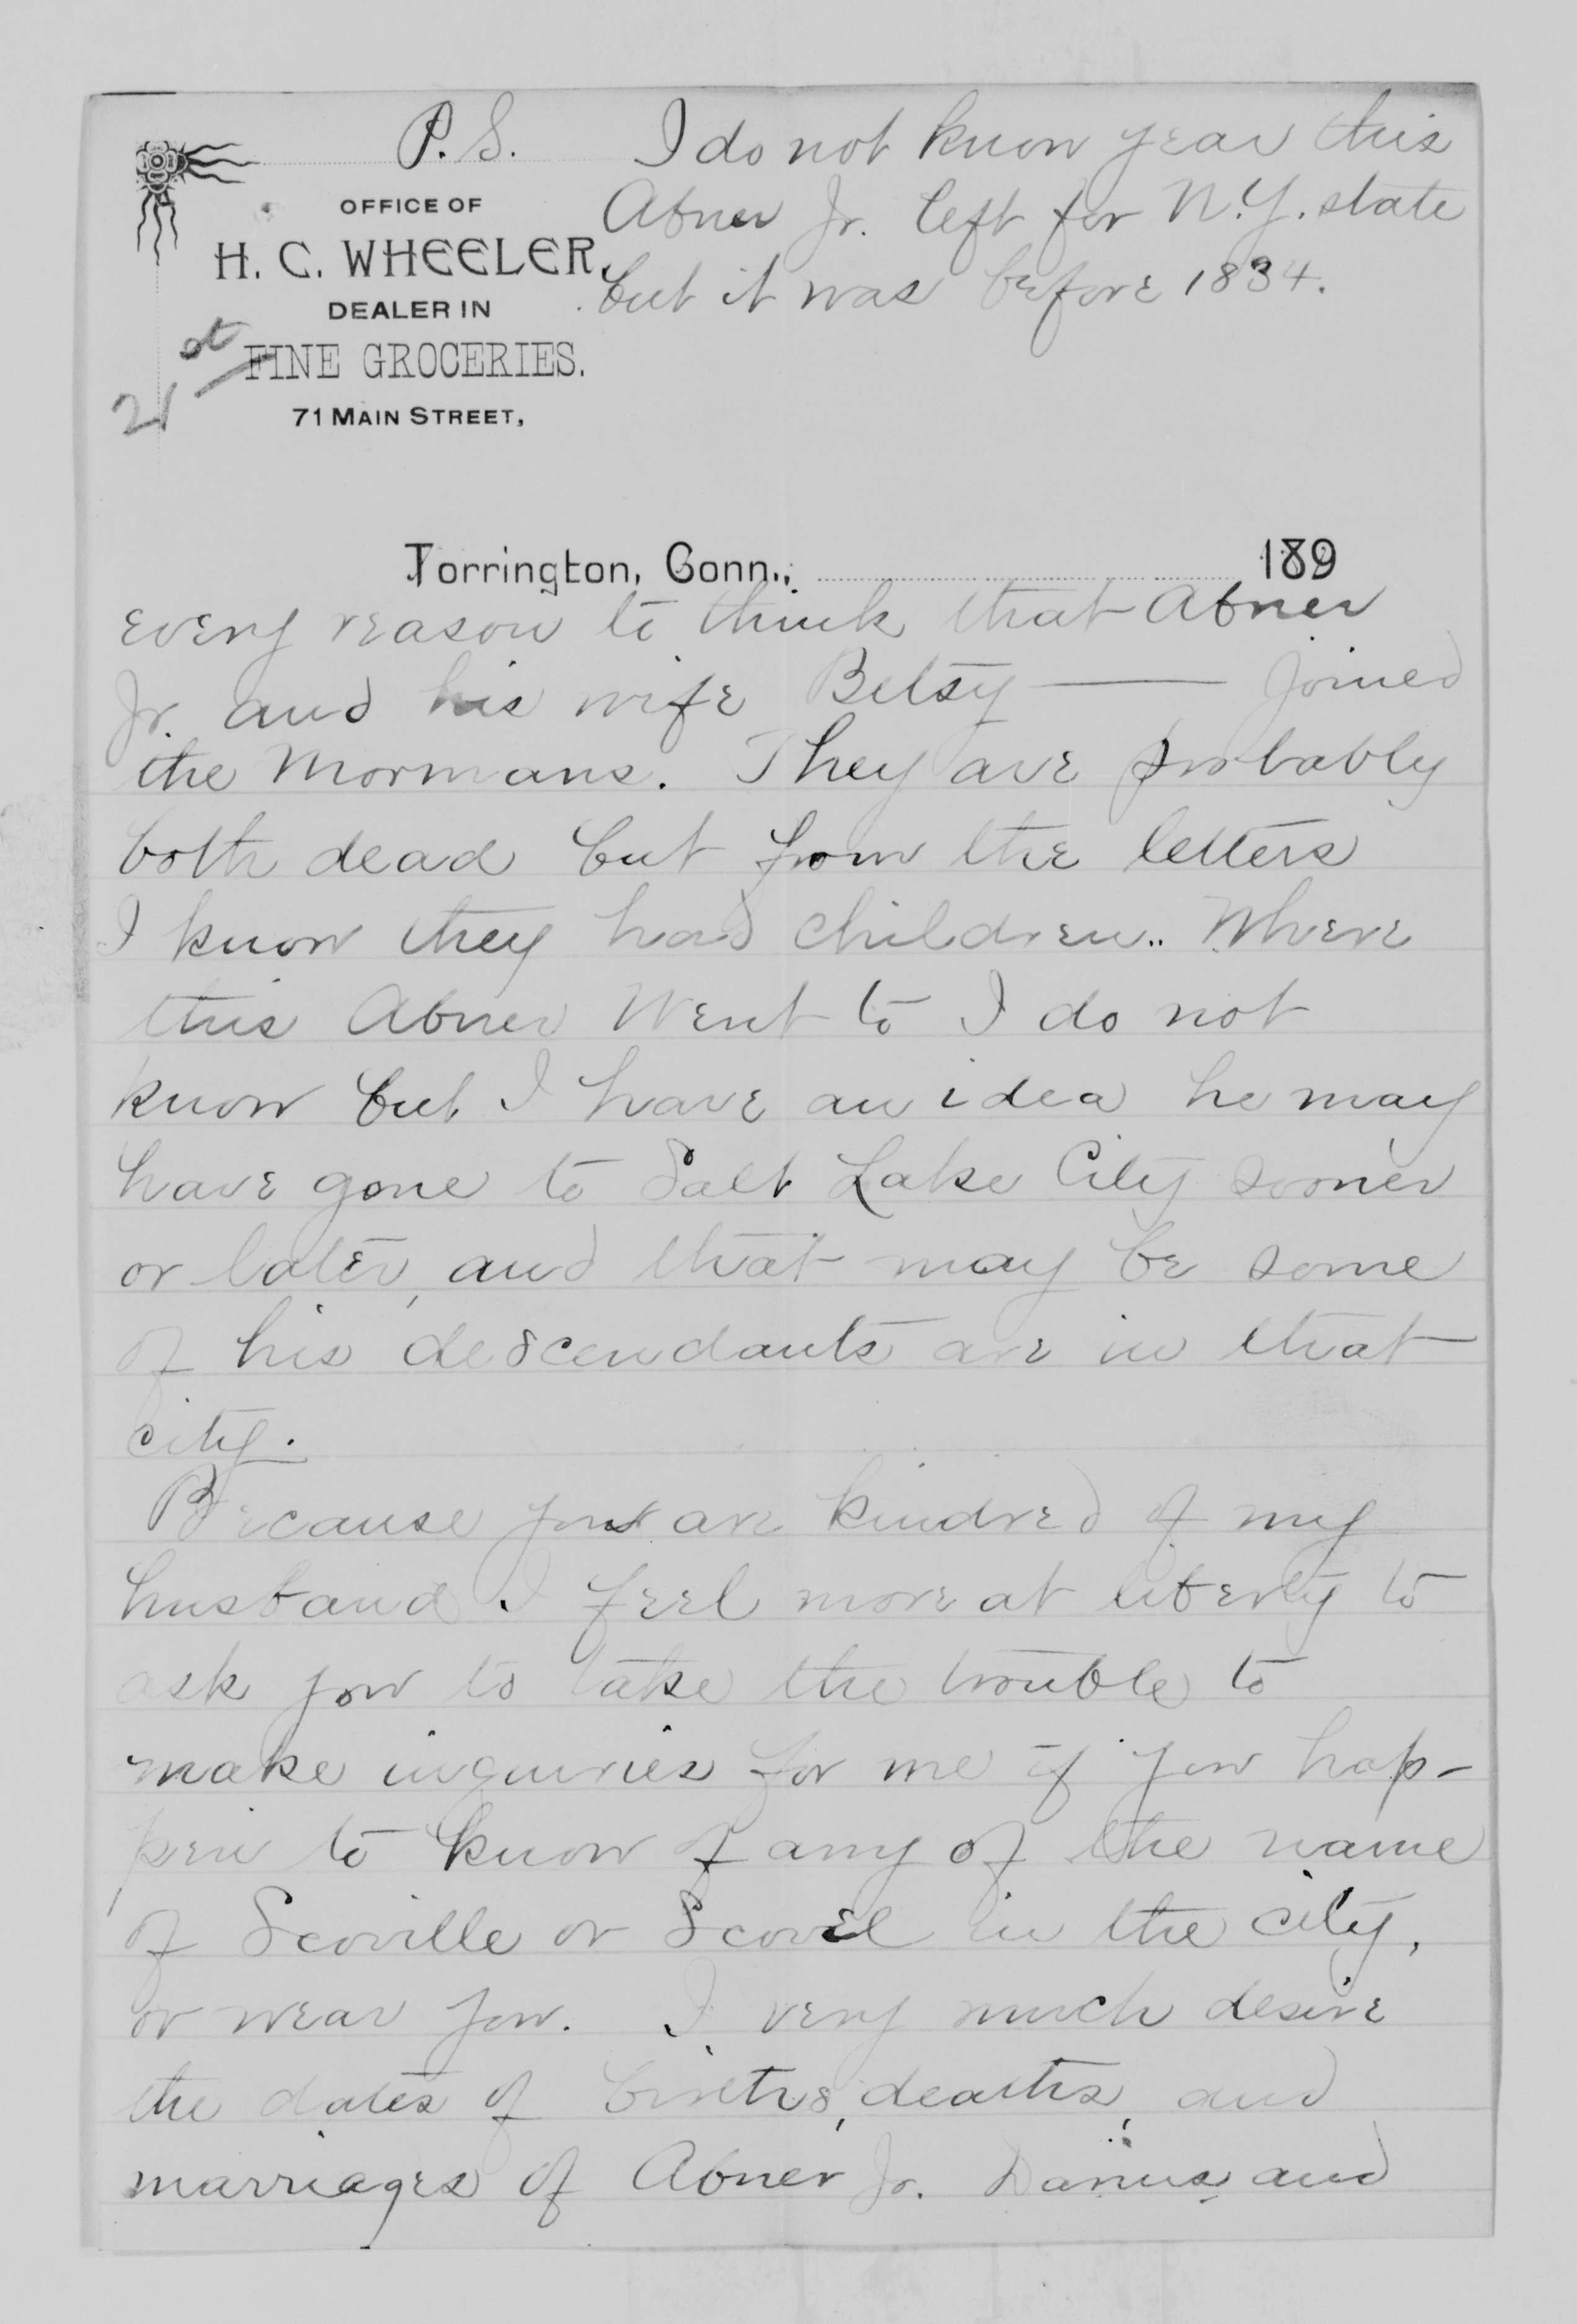 P.S. I do not know year this
Abner Jr. left for N.Y. state
but it was before 1834.
OFFICE OF
H. C. WHEELER,
DEALER IN
FINE GROCERIES.
71 MAIN STREET,
Torrington, Conn., 189
every reason to think that Abner
Jr. and his wife Betsy — joined
the Mormans. They are probably
both dead but from the letters
I know they had children.. Where
this Abner went to I do not
know but I have an idea he may
have gone to Salt Lake City sooner
or later, and that may be some
of his descendants are in that
city.
Because you are kindred of my
husband I feel more at liberty to
ask you to take the trouble to
make inquiries for me if you hap-
pen to know of any of the name
of Scoville or Scovel in the city,
or near you. I very much desire
the dates of births, deaths, and
marriages of Abner Jr. Darius and